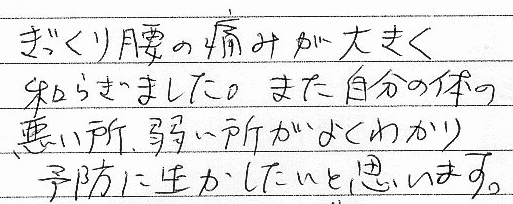 ぎっくり腰の痛みが大きく
和らぎました。また自分の体の
悪い所、弱い所がよくわかり
予防に生かしたいと思います。